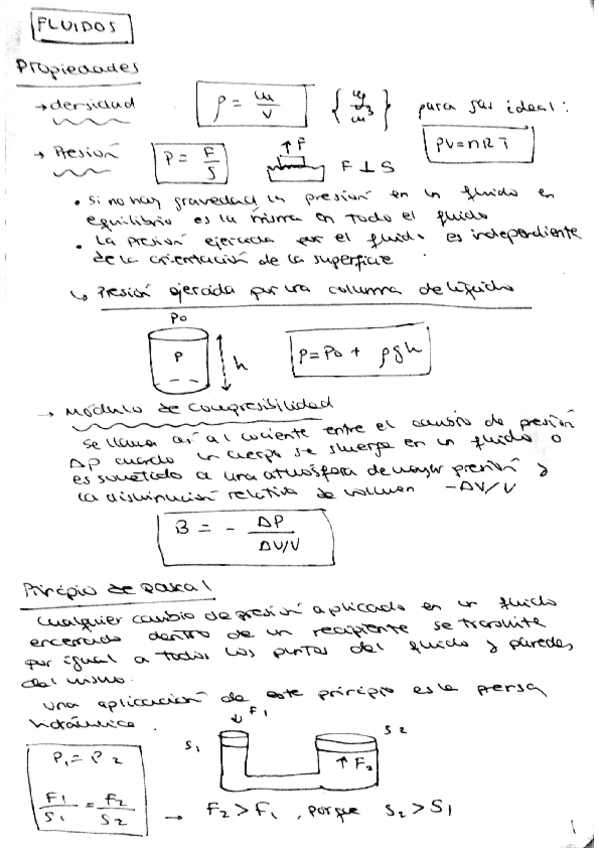 FLUIDOS
Propiedades
→ densidad ρ = m/V { kg/m³ } para gas ideal:
→ Presión P = F/S ↑F F ⊥ S PV = nRT
• Si no hay gravedad la presión en un fluido en
equilibrio es la misma en todo el fluido
• La presión ejercida por el fluido es independiente
de la orientación de la superficie
↳ Presión ejercida por una columna de líquido
P0
P h P = P0 + ρgh
→ Módulo de compresibilidad
Se llama así al cociente entre el cambio de presión
ΔP cuando un cuerpo se sumerge en un fluido o
es sometido a una atmósfera de mayor presión y
la disminución relativa de volumen -ΔV/V
B = - ΔP / ΔV/V
Principio de Pascal
Cualquier cambio de presión aplicado en un fluido
encerrado dentro de un recipiente se transmite
por igual a todos los puntos del fluido y paredes
del mismo.
Una aplicación de este principio es la prensa
hidráulica.
↓F1
S1 S2
P1 = P2 ↑F2
F1/S1 = F2/S2 → F2 > F1, porque S2 > S1
1